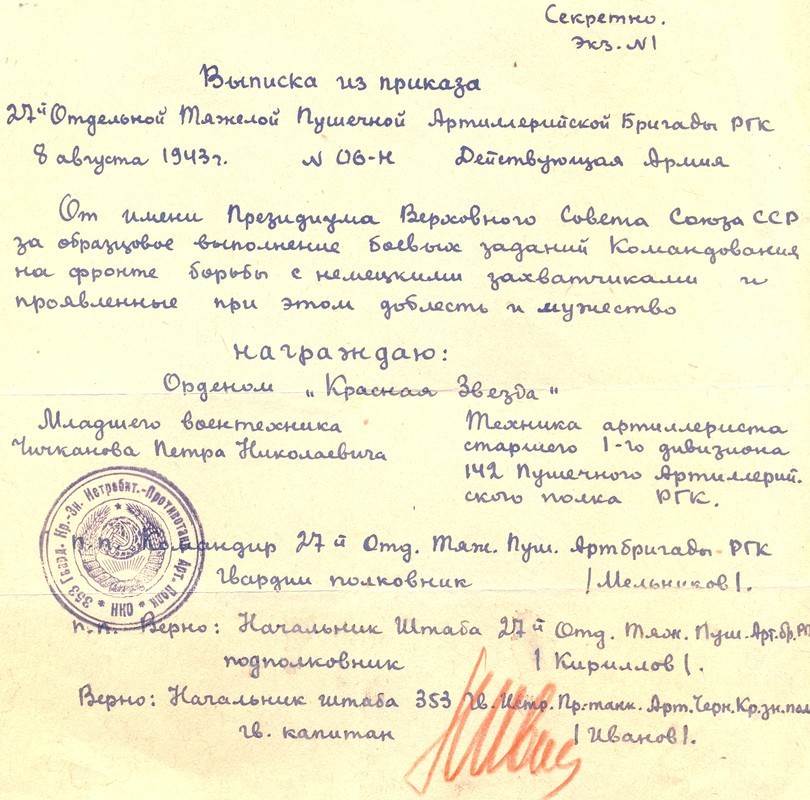 Секретно.
Экз. №1
Выписка из приказа
27й Отдельной Тяжелой Пушечной Артиллерийской Бригады РГК
8 августа 1943г. № 06-Н Действующая Армия
От имени Президиума Верховного Совета Союза ССР
за образцовое выполнение боевых заданий Командования
на фронте борьбы с немецкими захватчиками и
проявленные при этом доблесть и мужество
награждаю:
Орденом „Красная Звезда"
Младшего воентехника
Чичканова Петра Николаевича
Техника артиллериста
старшего 1-го дивизиона
142 Пушечного Артиллерий.
ского полка РГК.
353 Гвард. Кр.-Зн. Истребит.-Противотанк. Арт. Полк
НКО
п.п. Командир 27й Отд. Тяж. Пуш. Артбригады РГК
Гвардии полковник /Мельников/.
п.п. Верно: Начальник Штаба 27й Отд. Тяж. Пуш. Арт.бр. РГ
подполковник / Кириллов /.
Верно: Начальник штаба 353 Гв. Истр. Пр-танк. Арт. Черн. Кр.зн. пол
гв. капитан / Иванов /.